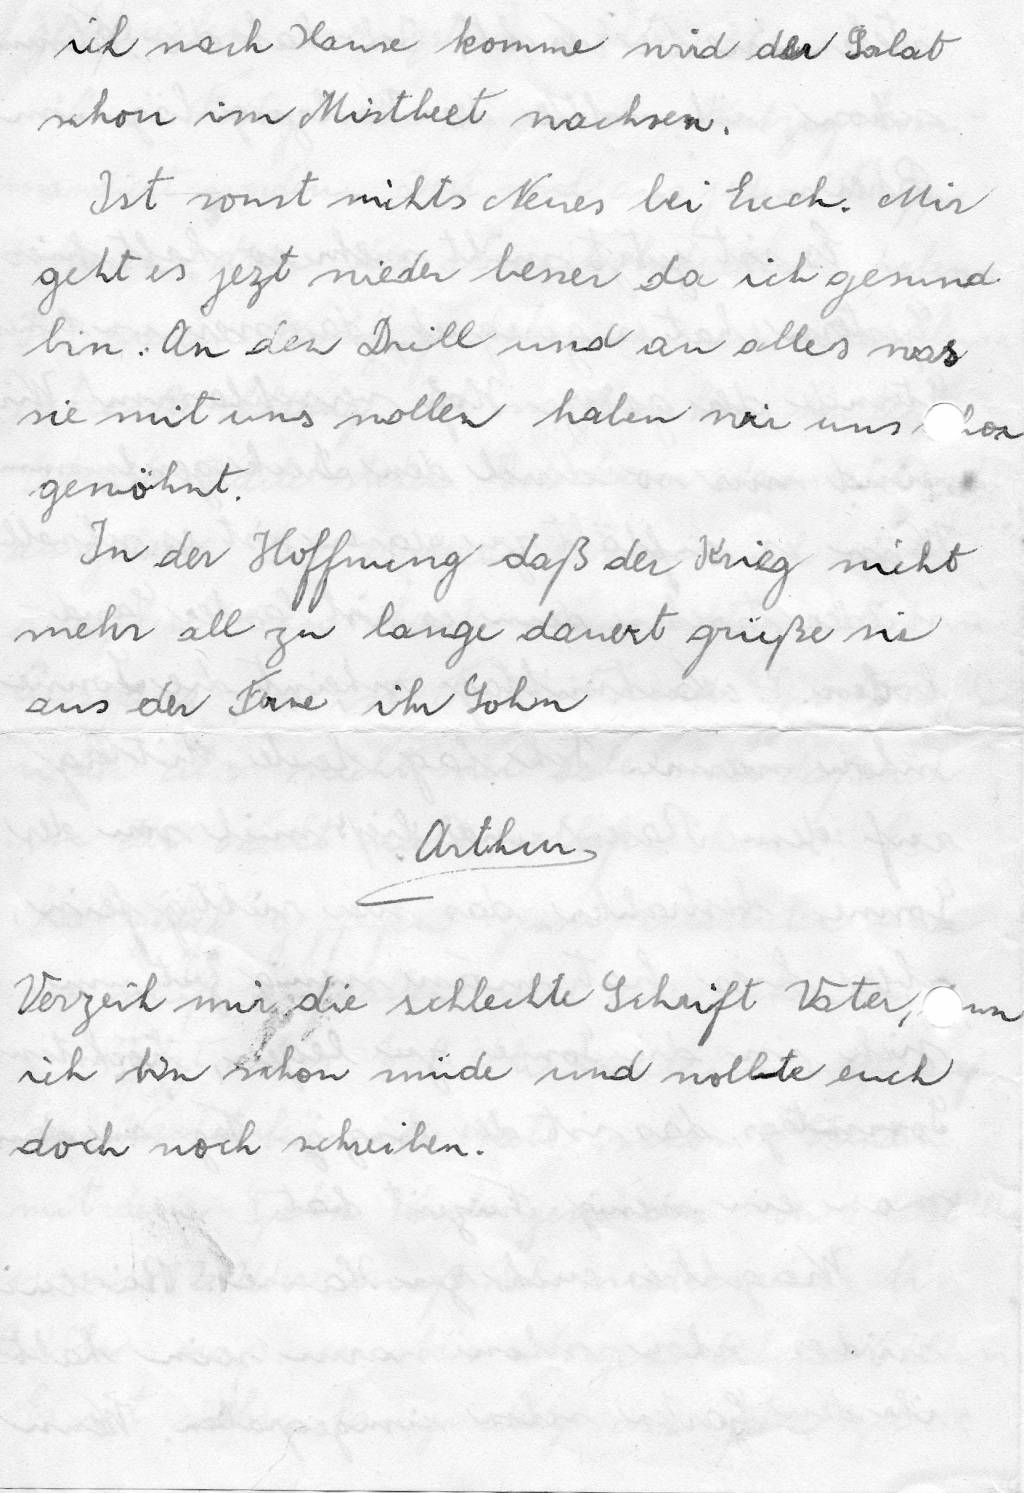 ich nach Hause komme wird der Salat
schon im Mistbeet wachsen.
Ist sonst nichts Neues bei Euch. Mir
geht es jezt wieder besser da ich gesund
bin. An den Drill und an alles was
sie mit uns wollen haben wir uns
gewöhnt.
In der Hoffnung daß der Krieg nicht
mehr all zu lange dauert grüße sie
aus der Ferne ihr Sohn
Arthur.
Verzeih mir die schlechte Schrift Vater,
ich bin schon müde und wollte euch
doch noch schreiben.